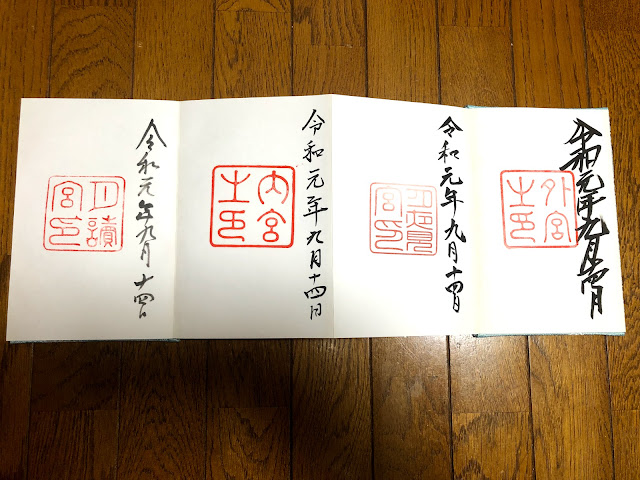 令和元年九月十四日
外宮
之印
令和元年九月十四日
月夜見
宮印
令和元年九月十四日
内宮
之印
令和元年九月十四日
月讀
宮印